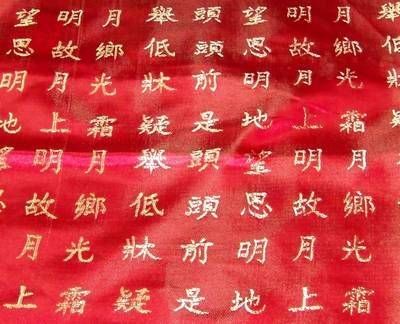 望明月舉頭望明月舉
思故鄉低頭思故鄉低
明月光牀前明月光
地上霜疑是地上霜
望明月舉頭望明月
故鄉低頭思故鄉
月光牀前明月光
上霜疑是地上霜